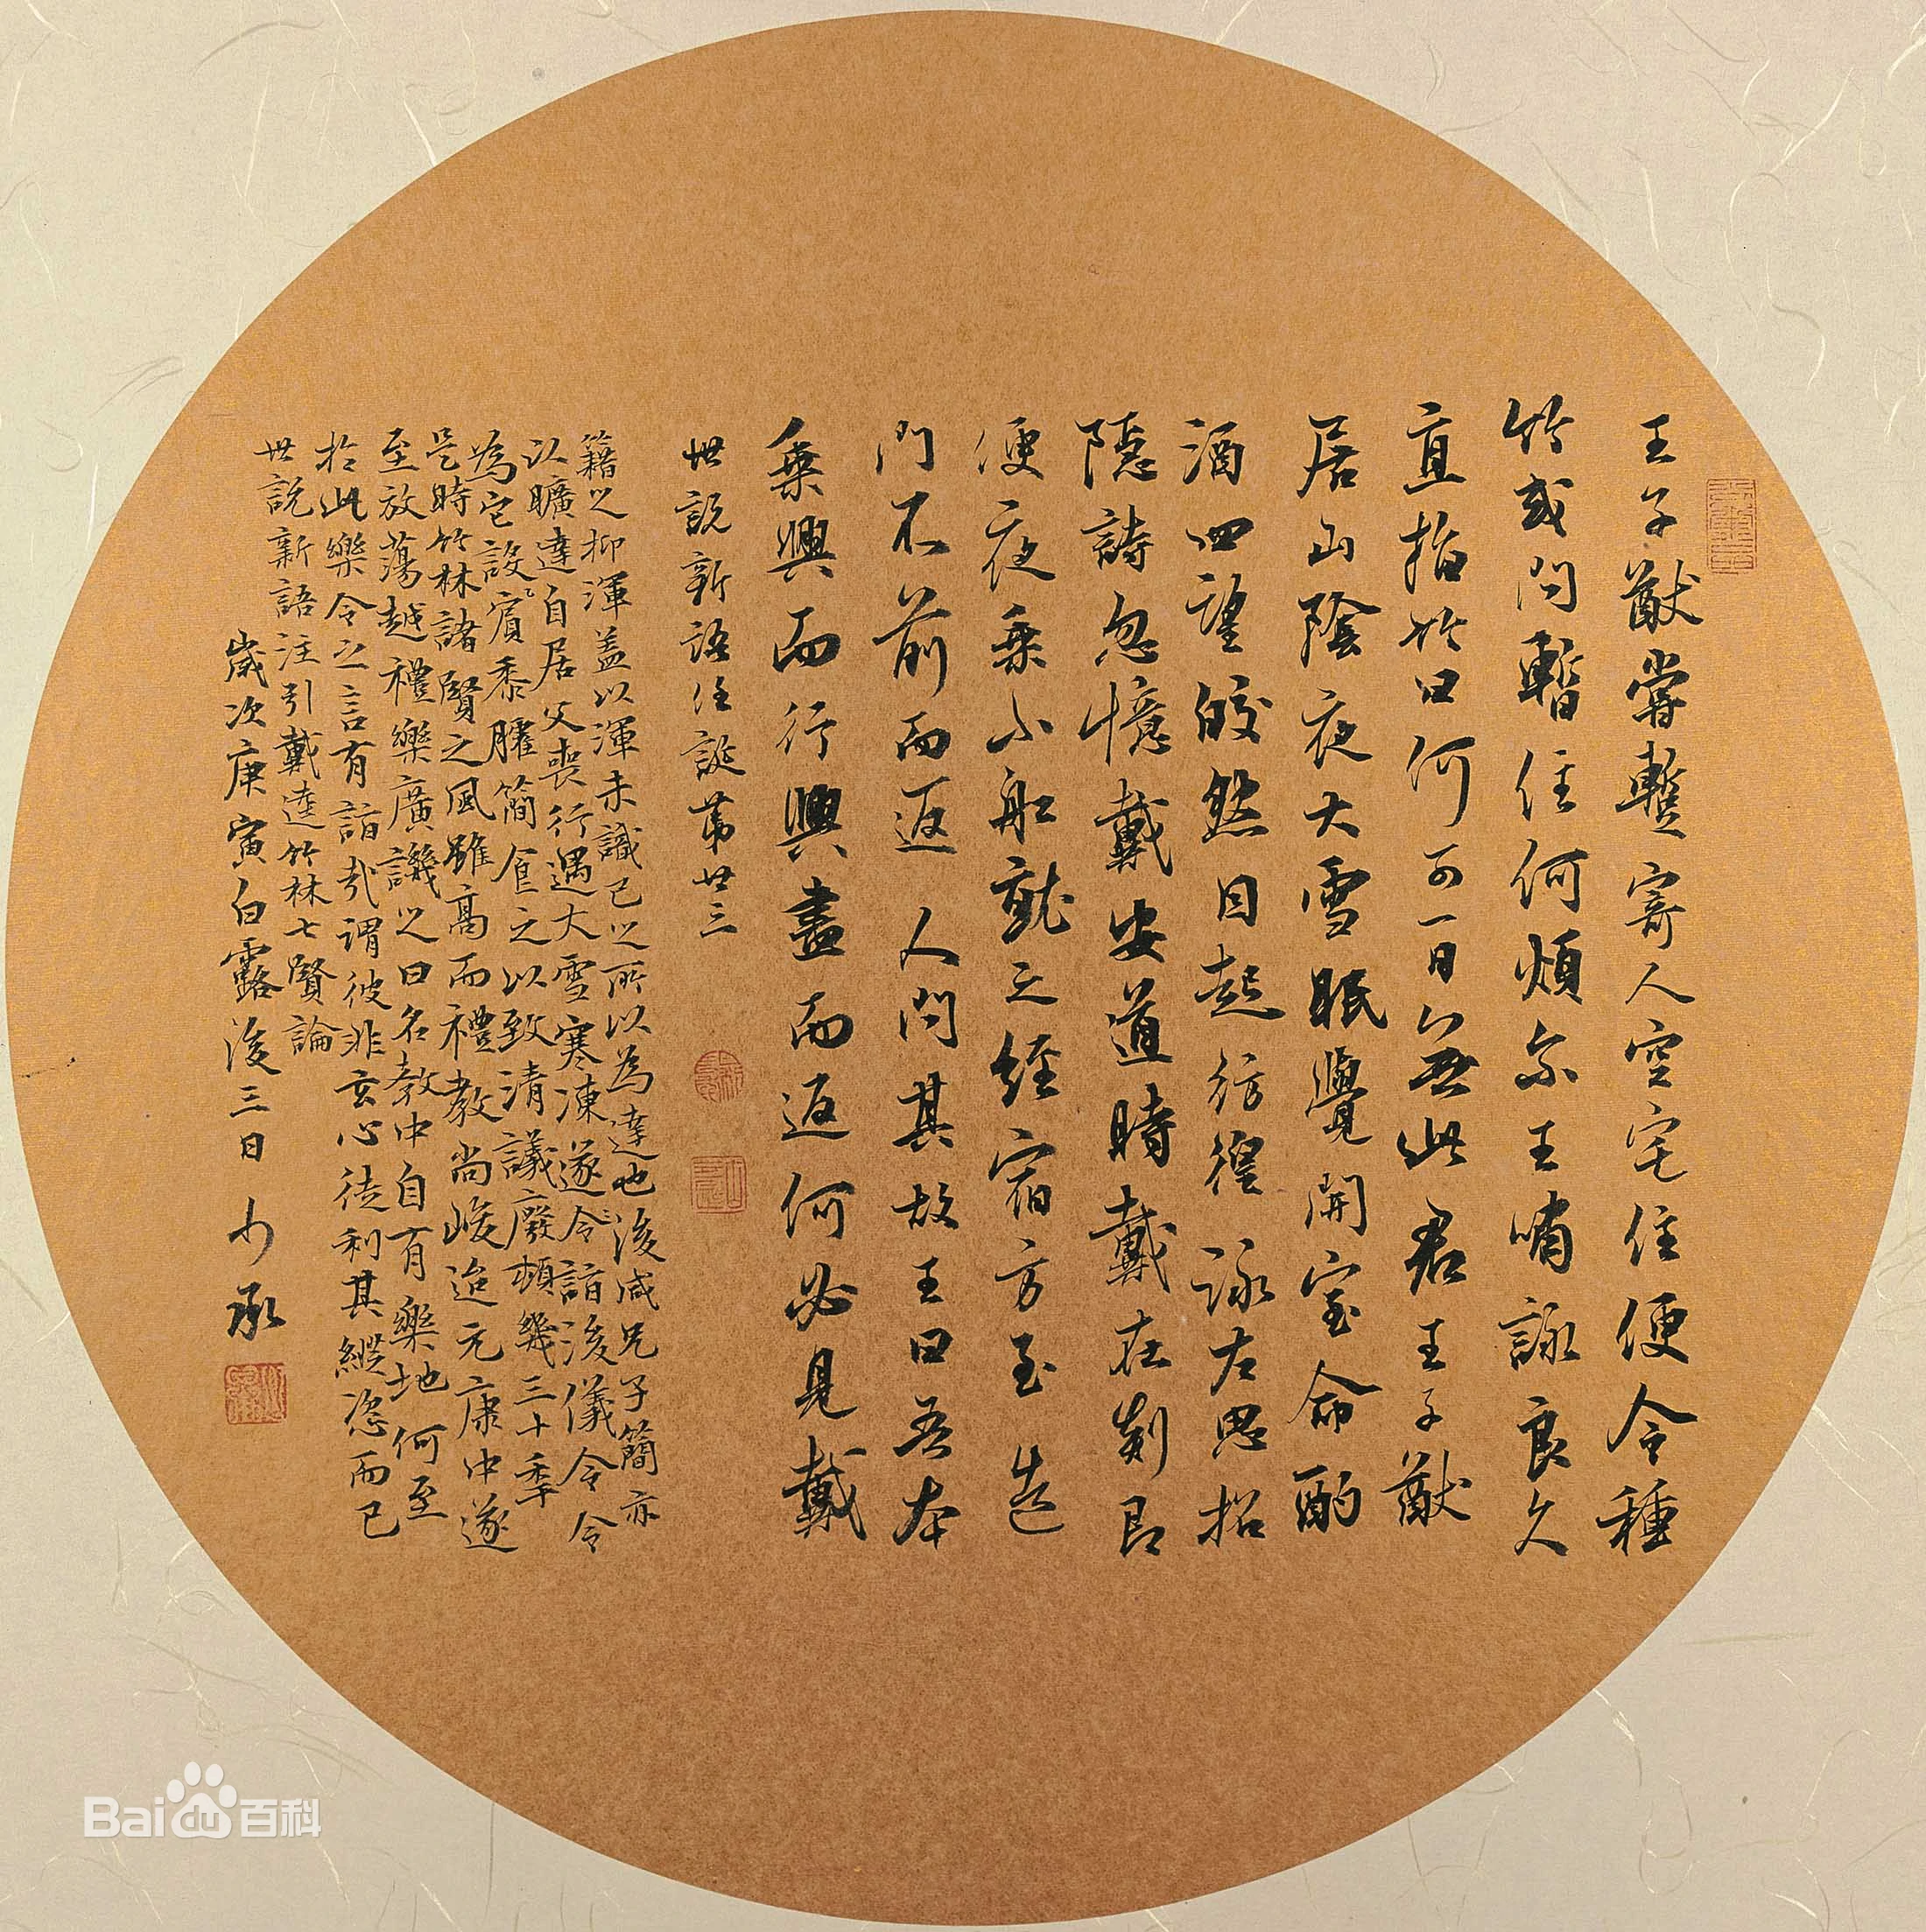 王子猷嘗蹔寄人空宅住便令種
竹或問暫住何煩尔王嘯詠良久
直指竹曰何可一日無此君王子猷
居山陰夜大雪眠覺開室命酌
酒四望皎然因起彷徨詠左思招
隱詩忽憶戴安道時戴在剡即
便夜乗小船就之經宿方至造
門不前而返人問其故王曰吾本
乗興而行興盡而返何必見戴
世說新語任誕第廿三
籍之抑渾蓋以渾未識己之所以為達也後咸兄子簡亦
以曠達自居父喪行遇大雪寒凍遂令詣浚儀令令
為它設賓黍臛簡食之以致清議廢頓幾三十季
是時竹林諸賢之風雖高而禮教尚峻迨元康中遂
至放蕩越禮樂廣譏之曰名教中自有樂地何至
於此樂令之言有詣哉謂彼非玄心徒利其縱恣而已
世說新語注引戴逵竹林七賢論
歲次庚寅白露後三日 少承
Baidu百科